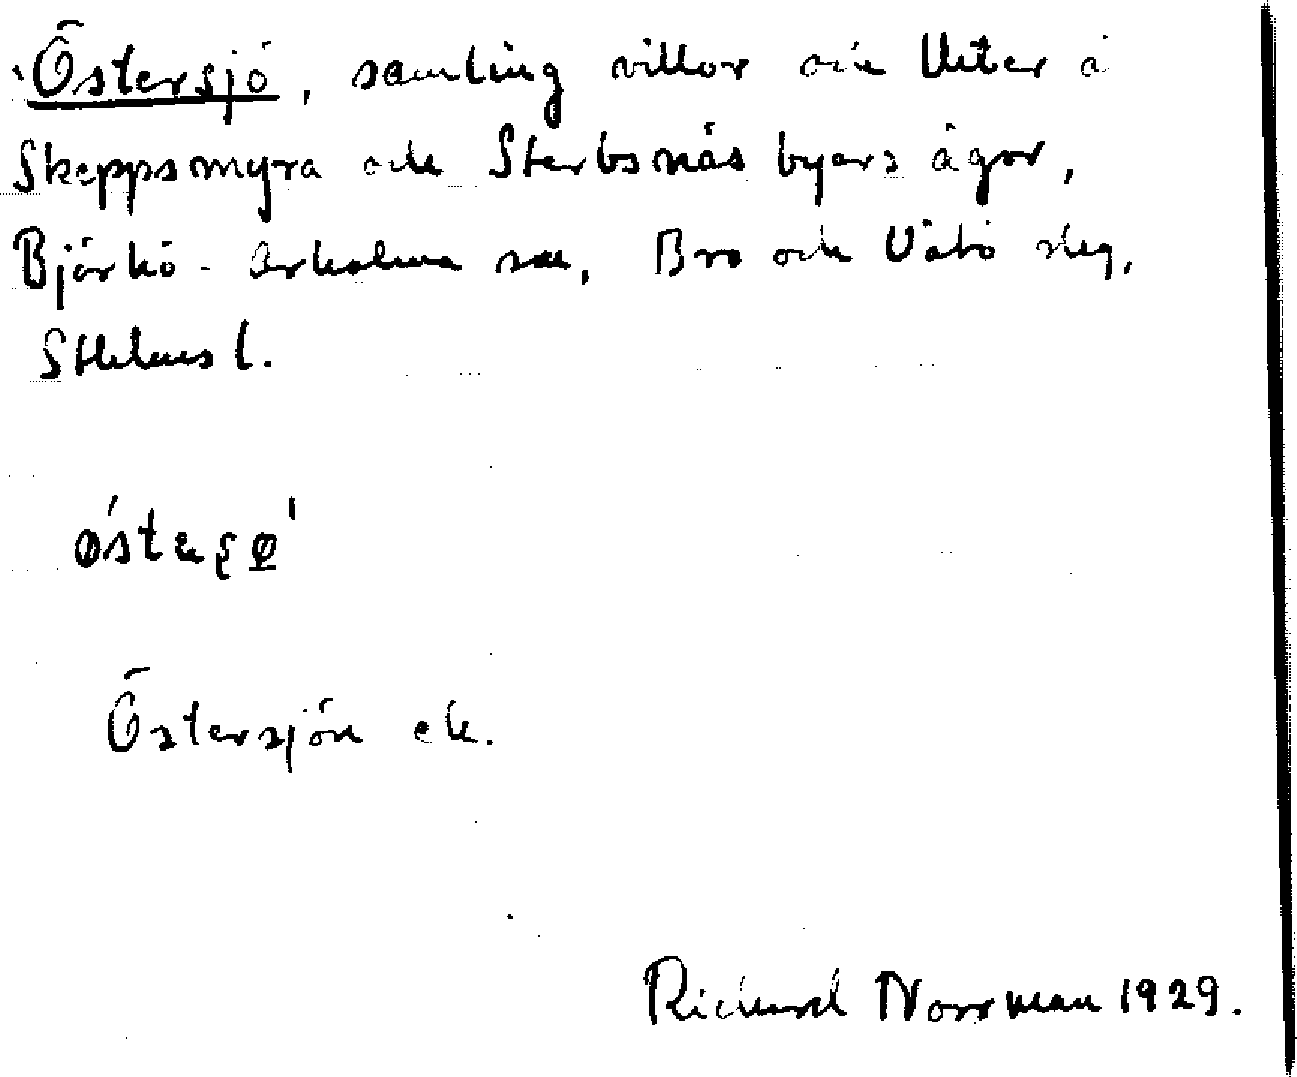 Östersjö, samling villor och … å
Skeppsmyra och Sterbsnäs byars ägor,
Björkö-Arholma sn, Bro och Vätö skg,
Sthlms l.

Östersjön ek.
Richard Norrman 1929.